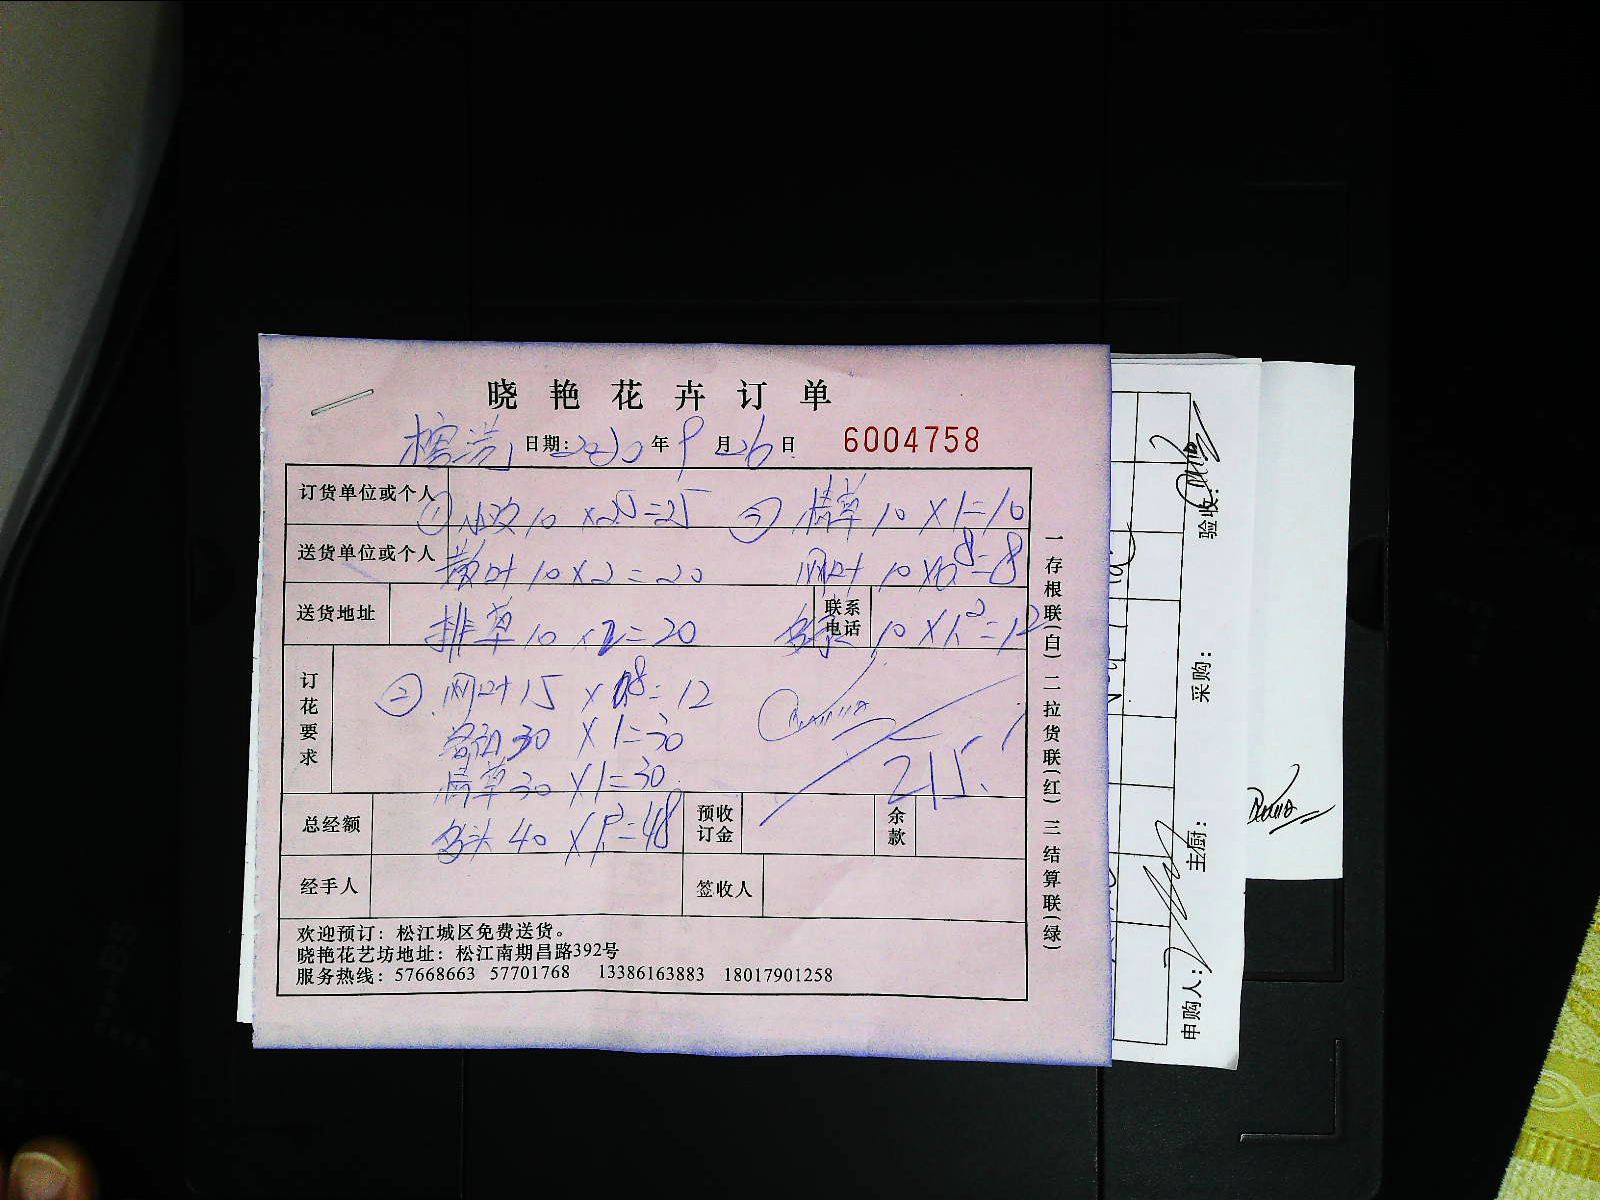 晓艳花卉订单
日期: 2020年9月26日 6004758
订货单位或个人 ① 10 x25=25 ③ 情草 10 X1=10
送货单位或个人 散叶 10 X2=20 网叶 10 X0.8=8
送货地址 排草 10 x2=20 联系电话 10 X1.2=12
订花要求 ② 网叶 15 x0.8=12
30 X1=30
情草 30 X1=30
215.
总经额 40 X1.2=48 预收订金 余款
经手人 签收人
欢迎预订：松江城区免费送货。
晓艳花艺坊地址：松江南期昌路392号
服务热线：57668663 57701768 13386163883 18017901258
一存根联(白) 二拉货联(红) 三结算联(绿)
验收:
采购:
主厨:
申购人: